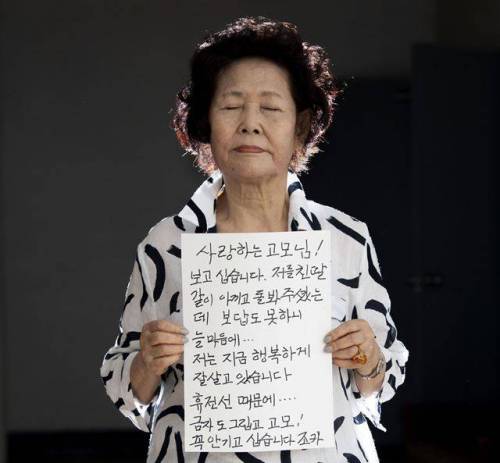 사랑하는 고모님!
보고 십습니다. 저를 친딸
같이 아끼고 돌봐 주셨는
데 보답도 못하니
늘 마음에...
저는 지금 행복하게
잘살고 있습니다
휴전선 때문에....
금자도 그립고 고모!
꼭 안기고 십습니다 조카